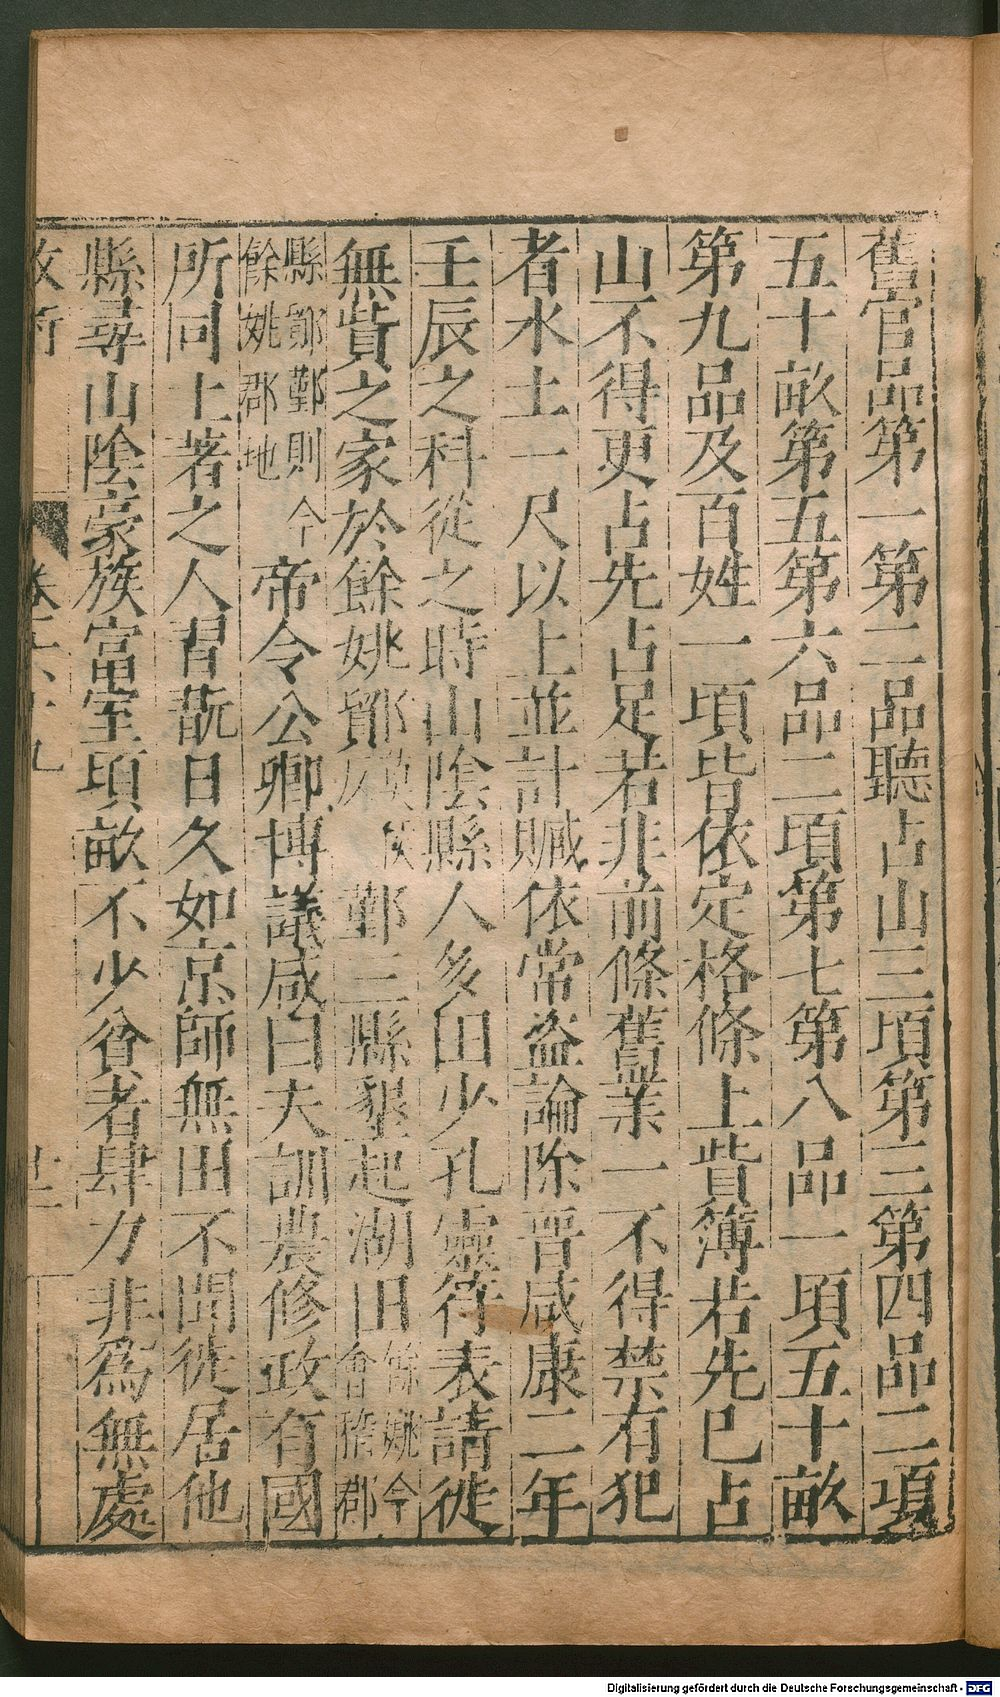 舊官品第一第二品聽占山三項第三第四品二項
五十畝第五第六品二項第七第八品一項五十畝
第九品及百姓一項皆依定格條上貲簿若先已占
山不得更占先占足若非前條舊業一不得禁有犯
者水土一尺以上並計贓依常盗論除晋咸康二年
壬辰之科從之時山陰縣人多田少孔靈符表請徙
無貲之家於餘姚鄮
鄞三縣墾起湖田餘姚今會稽郡
縣鄮鄞則今餘姚郡地帝令公卿博議咸曰夫訓農修政有國
所同土著之人習翫日久如京師無田不聞徙居他
縣尋山陰豪族富室頃畝不少貧者肆力非為無處
Digitalisierung gefördert durch die Deutsche Forschungsgemeinschaft - DFG